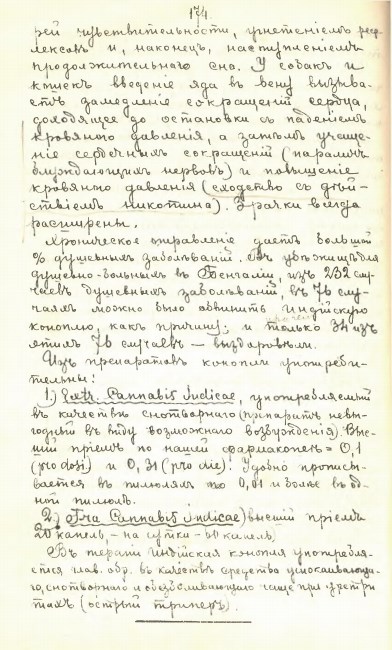 174
рей чувствительности, угнетеніемъ реф-
лексовъ и, наконецъ, наступленіемъ
продолжительнаго сна. У собакъ и
кошекъ введеніе яда въ вену вызыва-
етъ замедленіе сокращеній сердца,
доходящее до остановки съ паденіемъ
кровяного давленія, а затѣмъ учаще-
ніе сердечныхъ сокращеній (параличъ
блуждающихъ нервовъ) и повышеніе
кровяного давленія (сходство съ дѣй-
ствіемъ никотина). Зрачки всегда
расширены.
Хроническое отравленіе даетъ большой
% душевныхъ заболѣваній. Въ убѣжищѣ для
душевно-больныхъ въ Бенгаліи, изъ 232 слу-
чаевъ душевныхъ заболѣваній, въ 76 слу-
чаяхъ можно было обвинить Индійскую
коноплю, какъ причину; и только 34 изъ
этихъ 76 случаевъ — выздоровѣли.
Изъ препаратовъ конопли употреби-
тельны:
1.) Extr. Cannabis Indicae, употребляемый
въ качествѣ снотворнаго (препаратъ невы-
годный въ виду возможнаго возбужденія). Выс-
шій пріемъ по нашей фармакопеѣ = 0,1
(pro dosi) и 0,31 (pro die). Удобно прописы-
вается въ пилюляхъ по 0,01 и болѣе въ од-
ной пилюлѣ.
2.) T-ra Cannabis Indicae) высшій пріемъ
20 капель, — на сутки — 50 капель)
Въ терапіи Индійская конопля употребля-
ется глав. обр. въ качествѣ средства успокаивающа-
го, снотворнаго и обезболивающаго чаще при уретри-
тахъ (острый трипперъ).